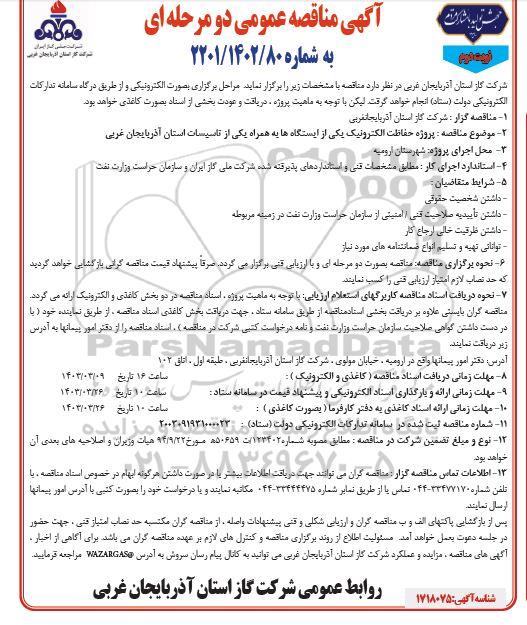 آگهی مناقصه عمومی دو مرحله ای
به شماره ۲۲۰۱/۱۴۰۲/۸۰
نوبت دوم
شرکت ملی گاز ایران
شرکت گاز استان آذربایجان غربی
شرکت گاز استان آذربایجان غربی در نظر دارد مناقصه با مشخصات زیر را برگزار نماید. مراحل برگزاری بصورت الکترونیکی و از طریق درگاه سامانه تدارکات
الکترونیکی دولت (ستاد) انجام خواهد گرفت. لیکن با توجه به ماهیت پروژه ، دریافت و عودت بخشی از اسناد بصورت کاغذی خواهد بود.
۱- مناقصه گزار : شرکت گاز استان آذربایجانغربی
۲- موضوع مناقصه : پروژه حفاظت الکترونیک یکی از ایستگاه ها به همراه یکی از تاسیسات استان آذربایجان غربی
۳- محل اجرای پروژه: شهرستان ارومیه
۴- استاندارد اجرای کار : مطابق مشخصات فنی و استانداردهای پذیرفته شده شرکت ملی گاز ایران و سازمان حراست وزارت نفت
۵- شرایط متقاضیان :
- داشتن شخصیت حقوقی
- داشتن تأییدیه صلاحیت فنی / امنیتی از سازمان حراست وزارت نفت در زمینه مربوطه
- داشتن ظرفیت خالی ارجاع کار
- توانائی تهیه و تسلیم انواع ضمانتنامه های مورد نیاز
۶- نحوه برگزاری مناقصه: مناقصه بصورت دو مرحله ای و با ارزیابی فنی برگزار می گردد. صرفاً پیشنهاد قیمت مناقصه گرانی بازگشایی خواهد گردید
که حد نصاب لازم امتیاز ارزیابی فنی را کسب نمایند.
۷- نحوه دریافت اسناد مناقصه کاربرگهای استعلام ارزیابی: با توجه به ماهیت پروژه ، اسناد مناقصه در دو بخش کاغذی و الکترونیک ارائه می گردد.
مناقصه گران بایستی علاوه بر دریافت بخشی اسنادمناقصه از طریق سامانه ستاد ، جهت دریافت بخش کاغذی اسناد مناقصه ، از طریق نماینده خود ( با
در دست داشتن گواهی صلاحیت سازمان حراست وزارت نفت و نامه درخواست کتبی شرکت در مناقصه ) ، اسناد مناقصه را از دفتر امور پیمانها به آدرس
زیر دریافت نمایند.
آدرس: دفتر امور پیمانها واقع در ارومیه ، خیابان مولوی ، شرکت گاز استان آذربایجانغربی ، طبقه اول ، اتاق ۱۰۲
۸- مهلت زمانی دریافت اسناد مناقصه ( کاغذی و الکترونیک ) : ساعت ۱۶ تاریخ ۱۴۰۳/۰۳/۰۹
۹- مهلت زمانی ارائه و بارگذاری اسناد الکترونیکی و پیشنهاد قیمت در سامانه ستاد : ساعت ۱۰ تاریخ ۱۴۰۳/۰۳/۲۶
۱۰- مهلت زمانی ارائه اسناد کاغذی به دفتر کارفرما ( بصورت کاغذی ) : ساعت ۱۰ تاریخ ۱۴۰۳/۰۳/۲۶
۱۱- شماره مناقصه ثبت شده در سامانه تدارکات الکترونیکی دولت (ستاد) : ۲۰۰۳۰۹۱۹۳۱۰۰۰۰۲۳
۱۲- نوع و مبلغ تضمین شرکت در مناقصه : مطابق مصوبه شماره۱۲۳۴۰۲/ت۵۰۶۵۹ه مـورخ ۹۴/۹/۲۲ هیات وزیران و اصلاحیه های بعدی آن
خواهد بود.
۱۳- اطلاعات تماس مناقصه گزار : مناقصه گران می توانند جهت دریافت اطلاعات بیشتر یا در صورت داشتن هرگونه ابهام در خصوص اسناد مناقصه ، با
تلفن شماره ۳۳۴۷۷۱۷۰-۰۴۴ تماس یا از طریق نمابر شماره ۳۳۴۴۴۴۷۵-۰۴۴ مکاتبه نمایند و یا درخواست خود را بصورت کتبی با آدرس امور پیمانها
ارسال نمایند.
پس از بازگشایی پاکتهای الف و ب مناقصه گران و ارزیابی شکلی و فنی پیشنهادات واصله ، از مناقصه گران مکتسبه حد نصاب امتیاز فنی ، جهت حضور
در جلسه دعوت بعمل خواهد آمد. مسئولیت اطلاع از روند برگزاری مناقصه و کنترل های لازم بر عهده مناقصه گران می باشد. برای آگاهی از اخبار ،
آگهی های مناقصه ، مزایده و عملکرد شرکت گاز استان آذربایجان غربی می توانید به کانال پیام رسان سروش به آدرس @WAZARGAS مراجعه فرمایید.
روابط عمومی شرکت گاز استان آذربایجان غربی
شناسه آگهی: ۱۷۱۸۰۷۵
ParsNamadData